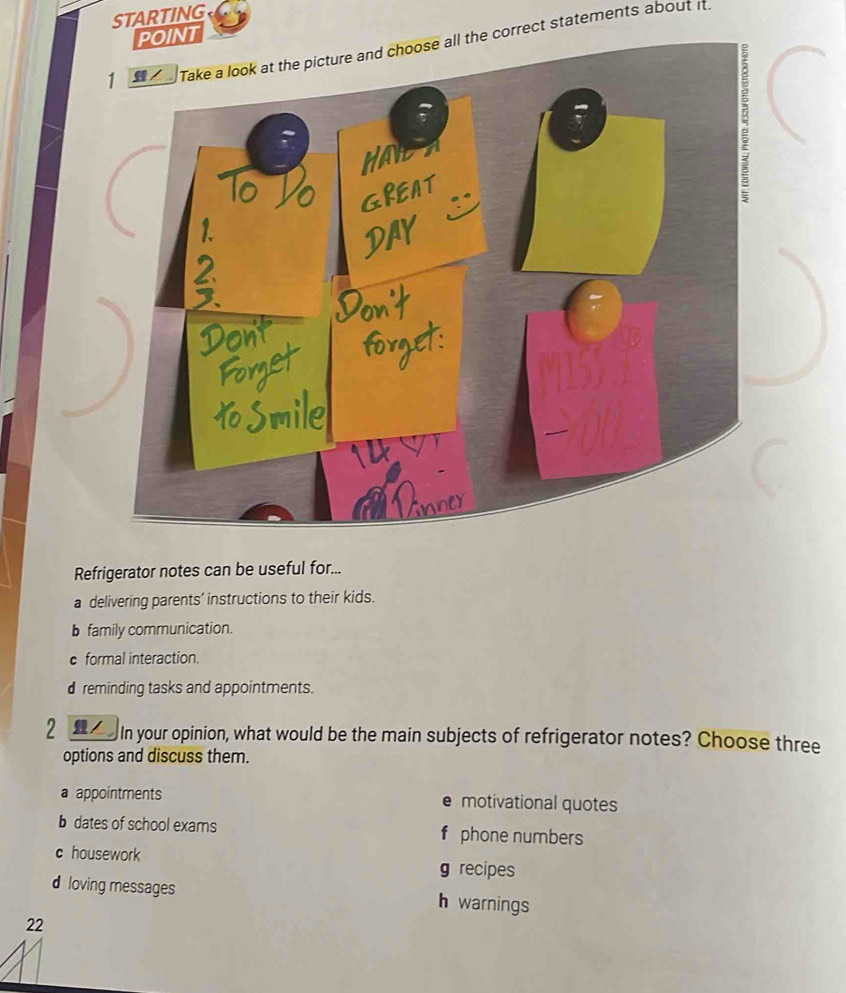 STARTING
POINT
1 Take a look at the picture and choose all the correct statements about it.
To Do
1.
2.
3.
HAVE A
GREAT
DAY
Don't
Forget
to Smile
Don't
forget:
MISS
YOU
14
Dinner
ART: EDITORIAL; PHOTO: JESZUFOTO/ISTOCKPHOTO
Refrigerator notes can be useful for...
a delivering parents' instructions to their kids.
b family communication.
c formal interaction.
d reminding tasks and appointments.
2 In your opinion, what would be the main subjects of refrigerator notes? Choose three
options and discuss them.
a appointments
b dates of school exams
c housework
d loving messages
e motivational quotes
f phone numbers
g recipes
h warnings
22